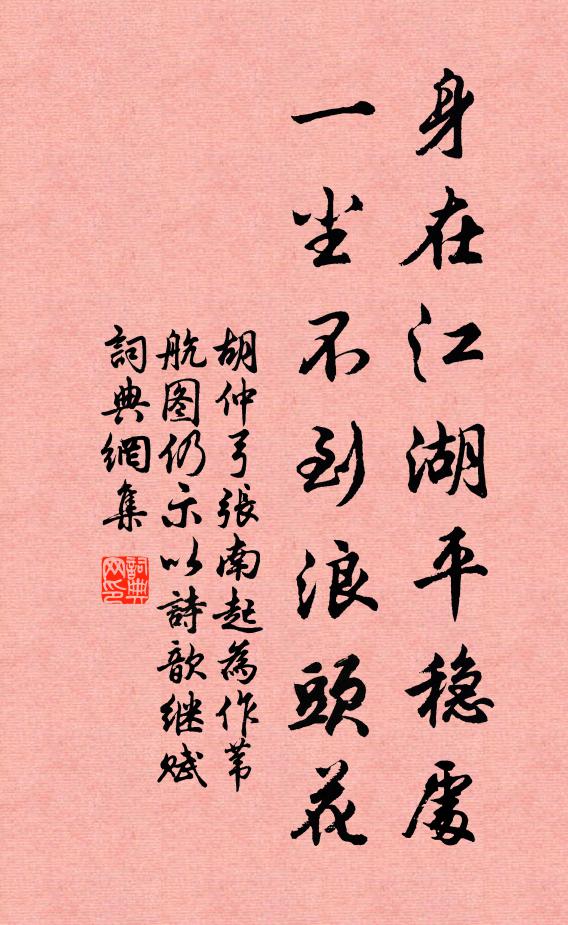 身在江湖平稳處
一尘不到浪頭花
胡仲弓張南起為作苇
航图仍示以詩歆继赋
詞典網集
詞典
网印